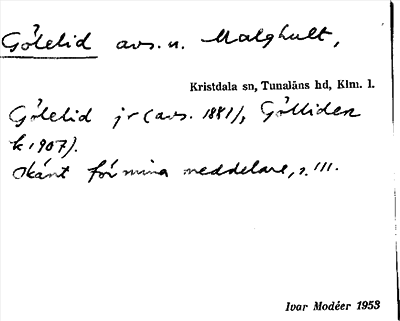 Gölelid avs. u. Malghult,
Kristdala sn, Tunaläns hd, Klm. l.
Gölelid jr (avs. 1881), Gölliden
k 1907).
Okänt för mina meddelare, s. 111.
Ivar Modéer 1953